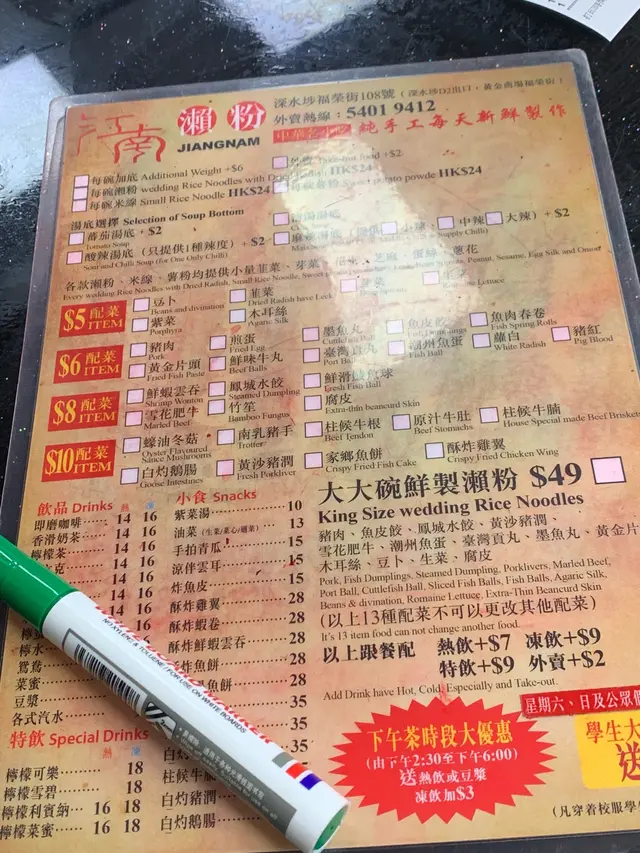 江南 瀨粉
JIANGNAM
深水埗福榮街108號 (深水埗D2出口,黃金商場福榮街)
外賣熱線:5401 9412
純手工每天新鮮製作
每碗加底 Additional Weight +$6
每碗瀨粉 wedding Rice Noodles with Dried HK$24
每碗米線 Small Rice Noodle HK$24
Take-out food +$2
Sweet potato powde HK$24
湯底選擇 Selection of Soup Bottom
蕃茄湯底 + $2
Tomato Soup
酸辣湯底 (只提供1種辣度) + $2
Sour and Chilli Soup (for One Only Chilli)
中辣 大辣) + $2
各款瀨粉、米線、薯粉均提供小量韮菜、芽菜
Every wedding Rice Noodles with Dried Radish, Small Rice Noodle, Sweet
Peanut, Sesame, Egg Silk and Onion
$5配菜 ITEM
豆卜
Beans and divination
韮菜
Dried Radish have Leek
紫菜
Porphyra
木耳絲
Agaric Silk
$6配菜 ITEM
豬肉
Pork
煎蛋
Fried Egg
墨魚丸
Cuttlefish Ball
魚皮餃
Fish Dumplings
魚肉春卷
Fish Spring Rolls
黃金片頭
Fried Fish Paste
鮮味牛丸
Beef Balls
臺灣貢丸
Port Ball
潮州魚蛋
Fish Ball
蘿白
White Radish
豬紅
Pig Blood
$8配菜 ITEM
鮮蝦雲吞
Shrimp Wonton
鳳城水餃
Steamed Dumpling
鮮滑鯪魚球
Fresh Fish Ball
雪花肥牛
Marbled Beef
竹笙
Bamboo Fungus
腐皮
Extra-thin beancurd Skin
$10配菜 ITEM
蠔油冬菇
Oyster Flavoured Sauce Mushrooms
南乳豬手
Trotter
柱候牛根
Beef Tendon
原汁牛肚
Beef Stomachs
柱候牛腩
House Special made Beef Brisket
白灼鵝腸
Goose Intestines
黃沙豬潤
Fresh Porkliver
家鄉魚餅
Crispy Fried Fish Cake
酥炸雞翼
Crispy Fried Chicken Wing
飲品 Drinks 熱 凍
即磨咖啡 14 16
香滑奶茶 14 16
檸檬茶 14 16
14 16
14 16
14 16
14 16
檸水
鴛鴦
菜蜜
豆漿
各式汽水
特飲 Special Drinks
熱 凍
檸檬可樂 18
檸檬雪碧 18
檸檬利賓納 16 18
檸檬菜蜜 16 18
小食 Snacks
紫菜湯 10
油菜 (生菜/菜心/通菜) 13
手拍青瓜 15
涼伴雲耳 15
炸魚皮 15
酥炸雞翼 28
酥炸蝦卷 28
酥炸鮮蝦雲吞 28
酥炸魚餅 28
魚餅 28
35
35
白灼
柱候牛
白灼豬潤
白灼鵝腸
大大碗鮮製瀨粉 $49
King Size wedding Rice Noodles
豬肉、魚皮餃、鳳城水餃、黃沙豬潤、
雪花肥牛、潮州魚蛋、臺灣貢丸、墨魚丸、黃金片
木耳絲、豆卜、生菜、腐皮
Pork, Fish Dumplings, Steamed Dumping, Porklivers, Marled Beef,
Port Ball, Cuttlefish Ball, Sliced Fish Balls, Fish Balls, Agaric Silk,
Beans & divination, Romaine Lettuce, Extra-Thin Beancurd Skin
(以上13種配菜不可以更改其他配菜)
It's 13 item food can not change another food.
以上跟餐配 熱飲+$7 凍飲+$9
特飲+$9 外賣+$2
Add Drink have Hot, Cold, Especially and Take-out.
下午茶時段大優惠
(由下午2:30至下午6:00)
送熱飲或豆漿
凍飲加$3
星期六、日及公眾假
學生大
送
(凡穿着校服學
NO XYLENE & TOLUENE / FOR USE ON WHITE BOARDS